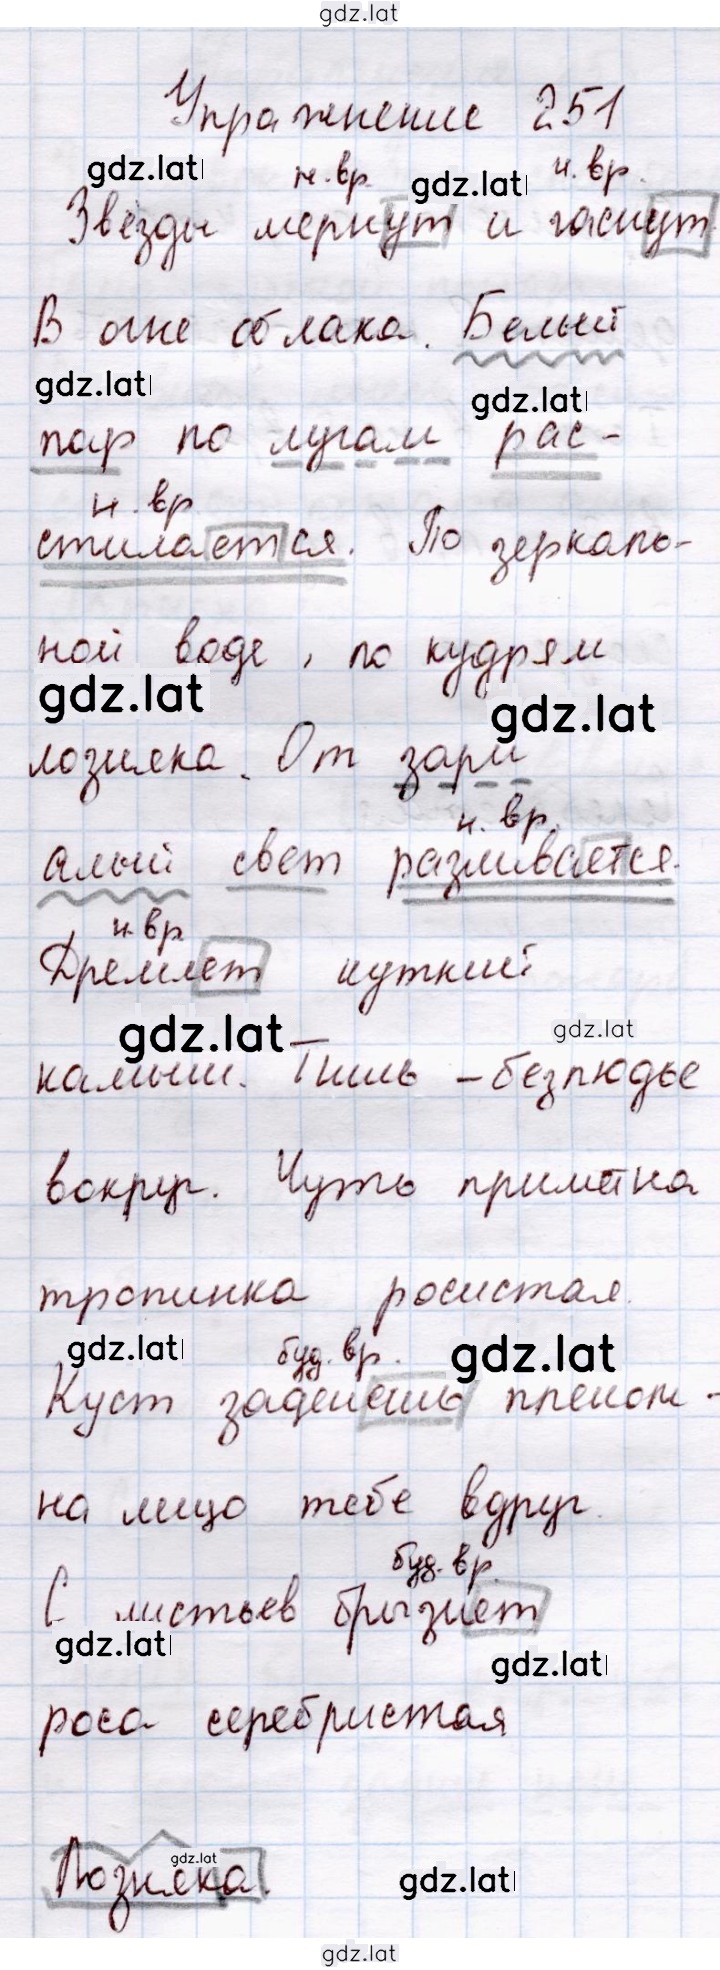 gdz.lat
Упражнение 251
gdz.lat н. вр. gdz.lat н. вр.
Звёзды меркнут и гаснут.
В огне облака. Белый
gdz.lat gdz.lat
пар по лугам рас-
н. вр.
стилается. По зеркаль-
ной воде, по кудрям
gdz.lat gdz.lat
лозняка. От зари
н. вр.
алый свет разливается.
н. вр.
Дремлет чуткий
gdz.lat gdz.lat
камыш. Тишь - безлюдье
вокруг. Чуть приметна
тропинка росистая.
gdz.lat буд. вр. gdz.lat
Куст заденешь плечом -
на лицо тебе вдруг.
буд. вр.
С листьев брызнет
gdz.lat gdz.lat
роса серебристая
gdz.lat
Лозняка. gdz.lat
gdz.lat